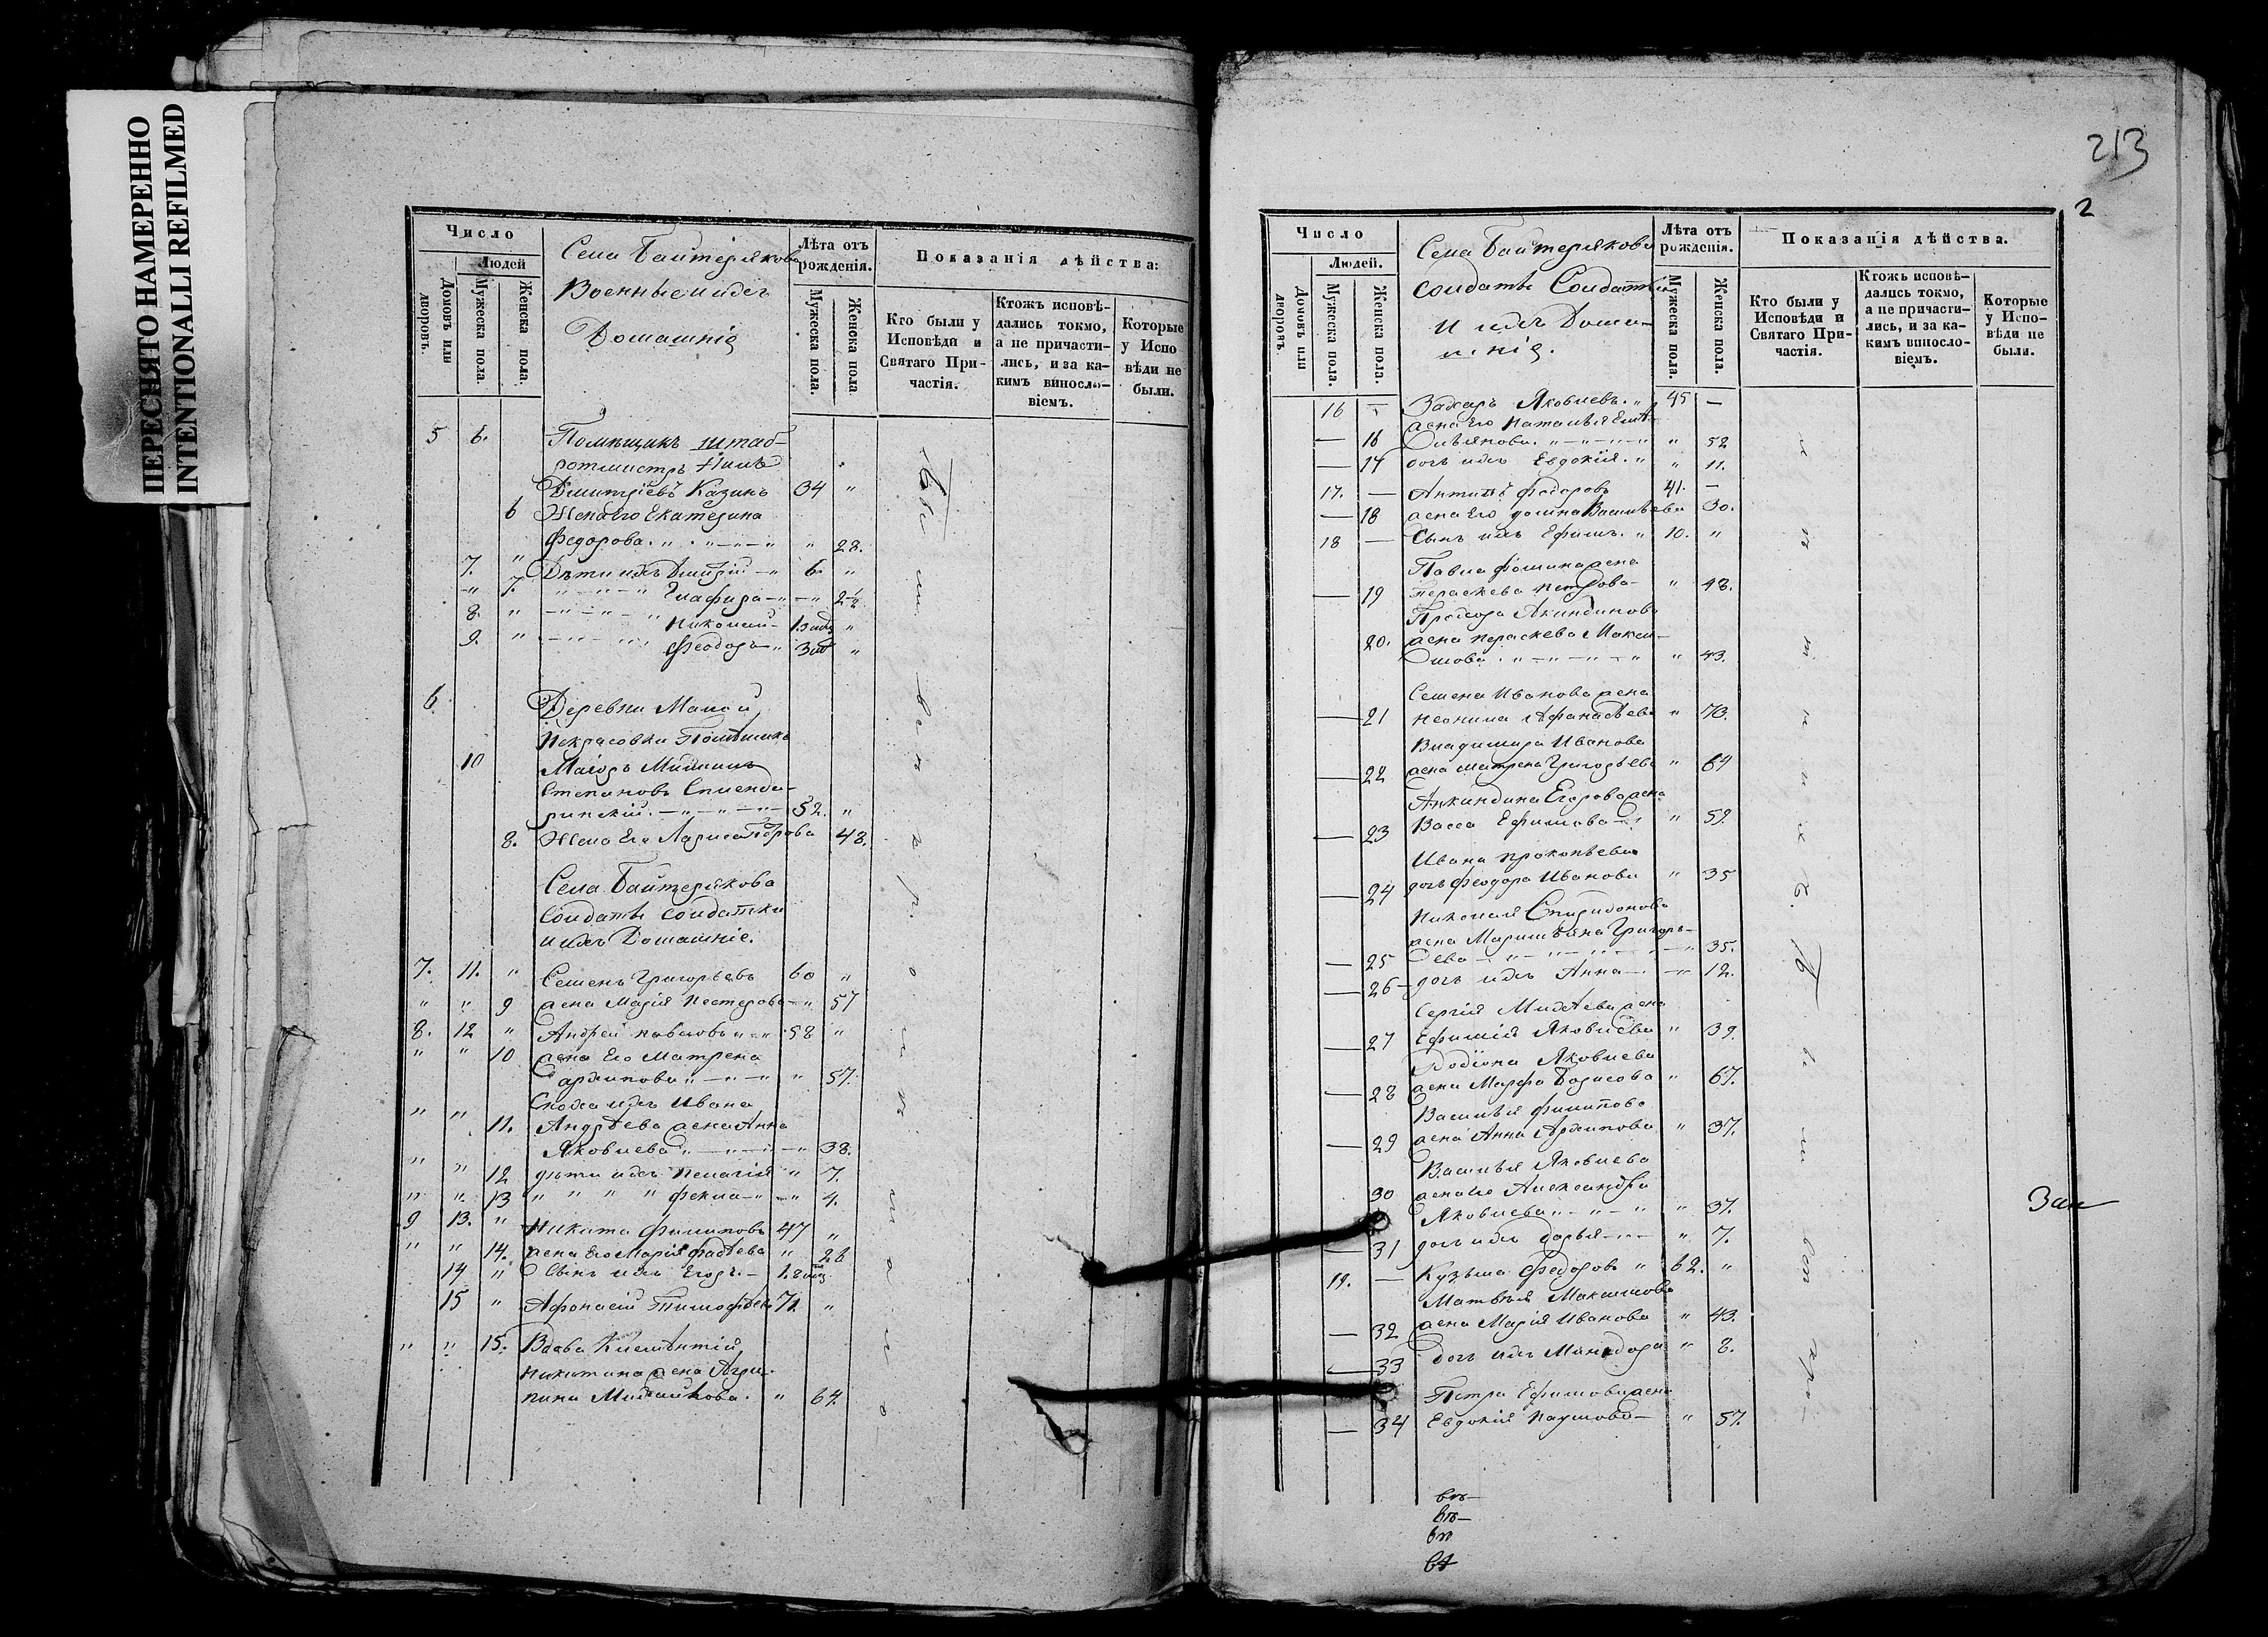 ПЕРЕСНЯТО НАМЕРЕННО
INTENTIONALLI REFILMED
Число
Людей
Домовъ или дворовъ.
Мужеска пола.
Женска пола.
Села Байтерякова
Военные и ихъ
Домашнія
Лѣта отъ рожденія.
Мужеска пола.
Женска пола
Показанія дѣйства:
Кто были у Исповѣди и Святаго Причастія.
Ктожъ исповѣ-
дались токмо,
а не причасти-
лись, и за ка-
кимъ виносло-
віемъ.
Которые
у Испо
вѣди не
были.
5 6. Помѣщикъ штаб-
ротмистръ
Дмитріевъ Казинъ 34 "
6 Жена Его Екатерина
Федорова. " 28.
7. " Дѣти ихъ Дмитрій 6. "
" 7. Глафира " 2½
8. " Николай
9. " Феодоръ
6 Деревни Малой
Некрасовки Помѣщикъ
10 Маіоръ
Степановъ
52. "
8. Жена Его Лариса Петрова 48.
Села Байтерякова
Солдаты Солдатки
и ихъ Домашніе.
7. 11. " Семенъ Григорьевъ 60 "
" " 9 жена Марія Нестерова " 57
8. 12 " Андрей Павловъ 58 "
" " 10 жена Его Матрена
Архипова " 57.
Сноха ихъ Ивана
" " 11. Андрѣева жена Анна
Яковлева " 38.
" " 12 дѣти ихъ Пелагія " 7.
" " 13 " " " " Фекла " 4.
9 13. " Никита Филиповъ 47 "
" " 14. жена Его Марія Фадѣева " 26
14 " Сынъ ихъ Егоръ
15 " Афонасій Тимофѣевъ 71. "
" " 15. Вдова
Никитина жена Агри-
пина Михайлова. " 64.
213
2
Число
Людей.
Домовъ или дворовъ.
Мужеска пола.
Женска пола.
Села Байтерякова
Солдаты Солдатки
и ихъ Домаш-
нія.
Лѣта отъ рожденія.
Мужеска пола.
Женска пола.
Показанія дѣйства.
Кто были у
Исповѣди и
Святаго При-
частія.
Ктожъ исповѣ-
дались токмо,
а не причасти-
лись, и за ка-
кимъ винослo-
віемъ.
Которые
у Испо-
вѣди не
были.
16 — Захаръ Яковлевъ. " 45 —
жена Его Наталья Емѣ-
— 16 льянова. " 52
— 17 дочь ихъ Евдокія. " 11.
17. — Антипъ Федоровъ 41. —
— 18 жена Его Домна Васильева 30.
18 — Сынъ ихъ Ефимъ. " 10. "
Павла Фомина жена
— 19 Параскева Петрова " 48.
Прохора Акиндинова
20. жена Параскева Макси-
мова " 43.
Семена Иванова жена
— 21 Неонила Афанасьева " 70.
Владимира Иванова
— 22 жена Матрена Григорьева " 64
Анкиндина Егорова жена
— 23 Васса Ефимова " 59.
Ивана Прокопьева
— 24 дочь Феодора Иванова " 35
Николая Спиридонова
жена Маримьяна Григорь-
— 25 ева " 35.
— 26 дочь ихъ Анна " 12.
Сергія Михѣева жена
— 27 Ефимія Яковлева " 39.
Родіона Яковлева
— 28 жена Марфа Борисова " 67.
Василья Филипова
— 29 жена Анна Архипова " 37.
Василья Яковлева
30 жена Его Александра
Яковлева " 37.
— 31 дочь ихъ Дарья " 7.
19. — Кузьма Федоровъ " 62. "
Матвѣя Максимова
— 32 жена Марія Иванова " 43.
— 33 дочь ихъ Минодора " 8.
Петра Ефимова жена
— 34 Евдокія Наумова " 57.